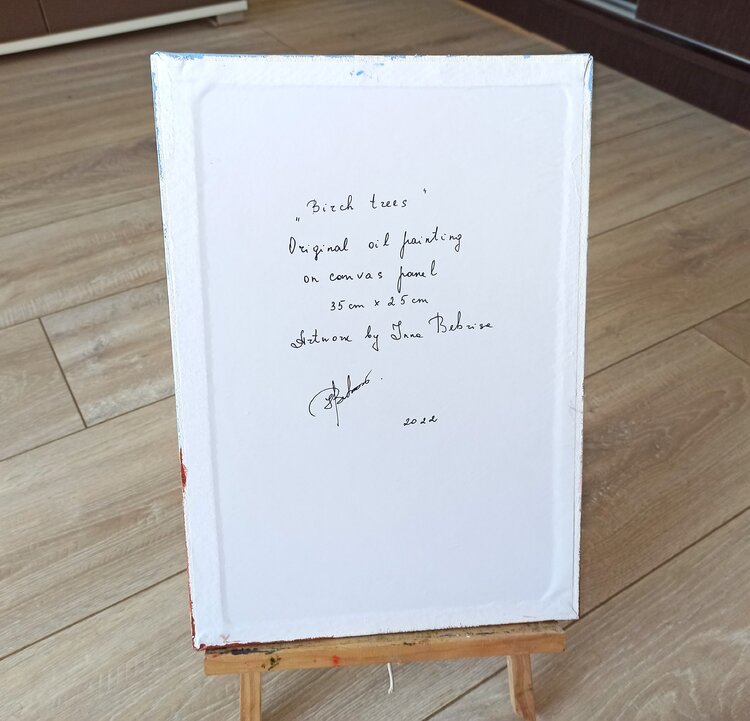 „Birch trees“
Original oil painting
on canvas panel
35 cm x 25 cm
Artwork by Inna Bebrisa
2022